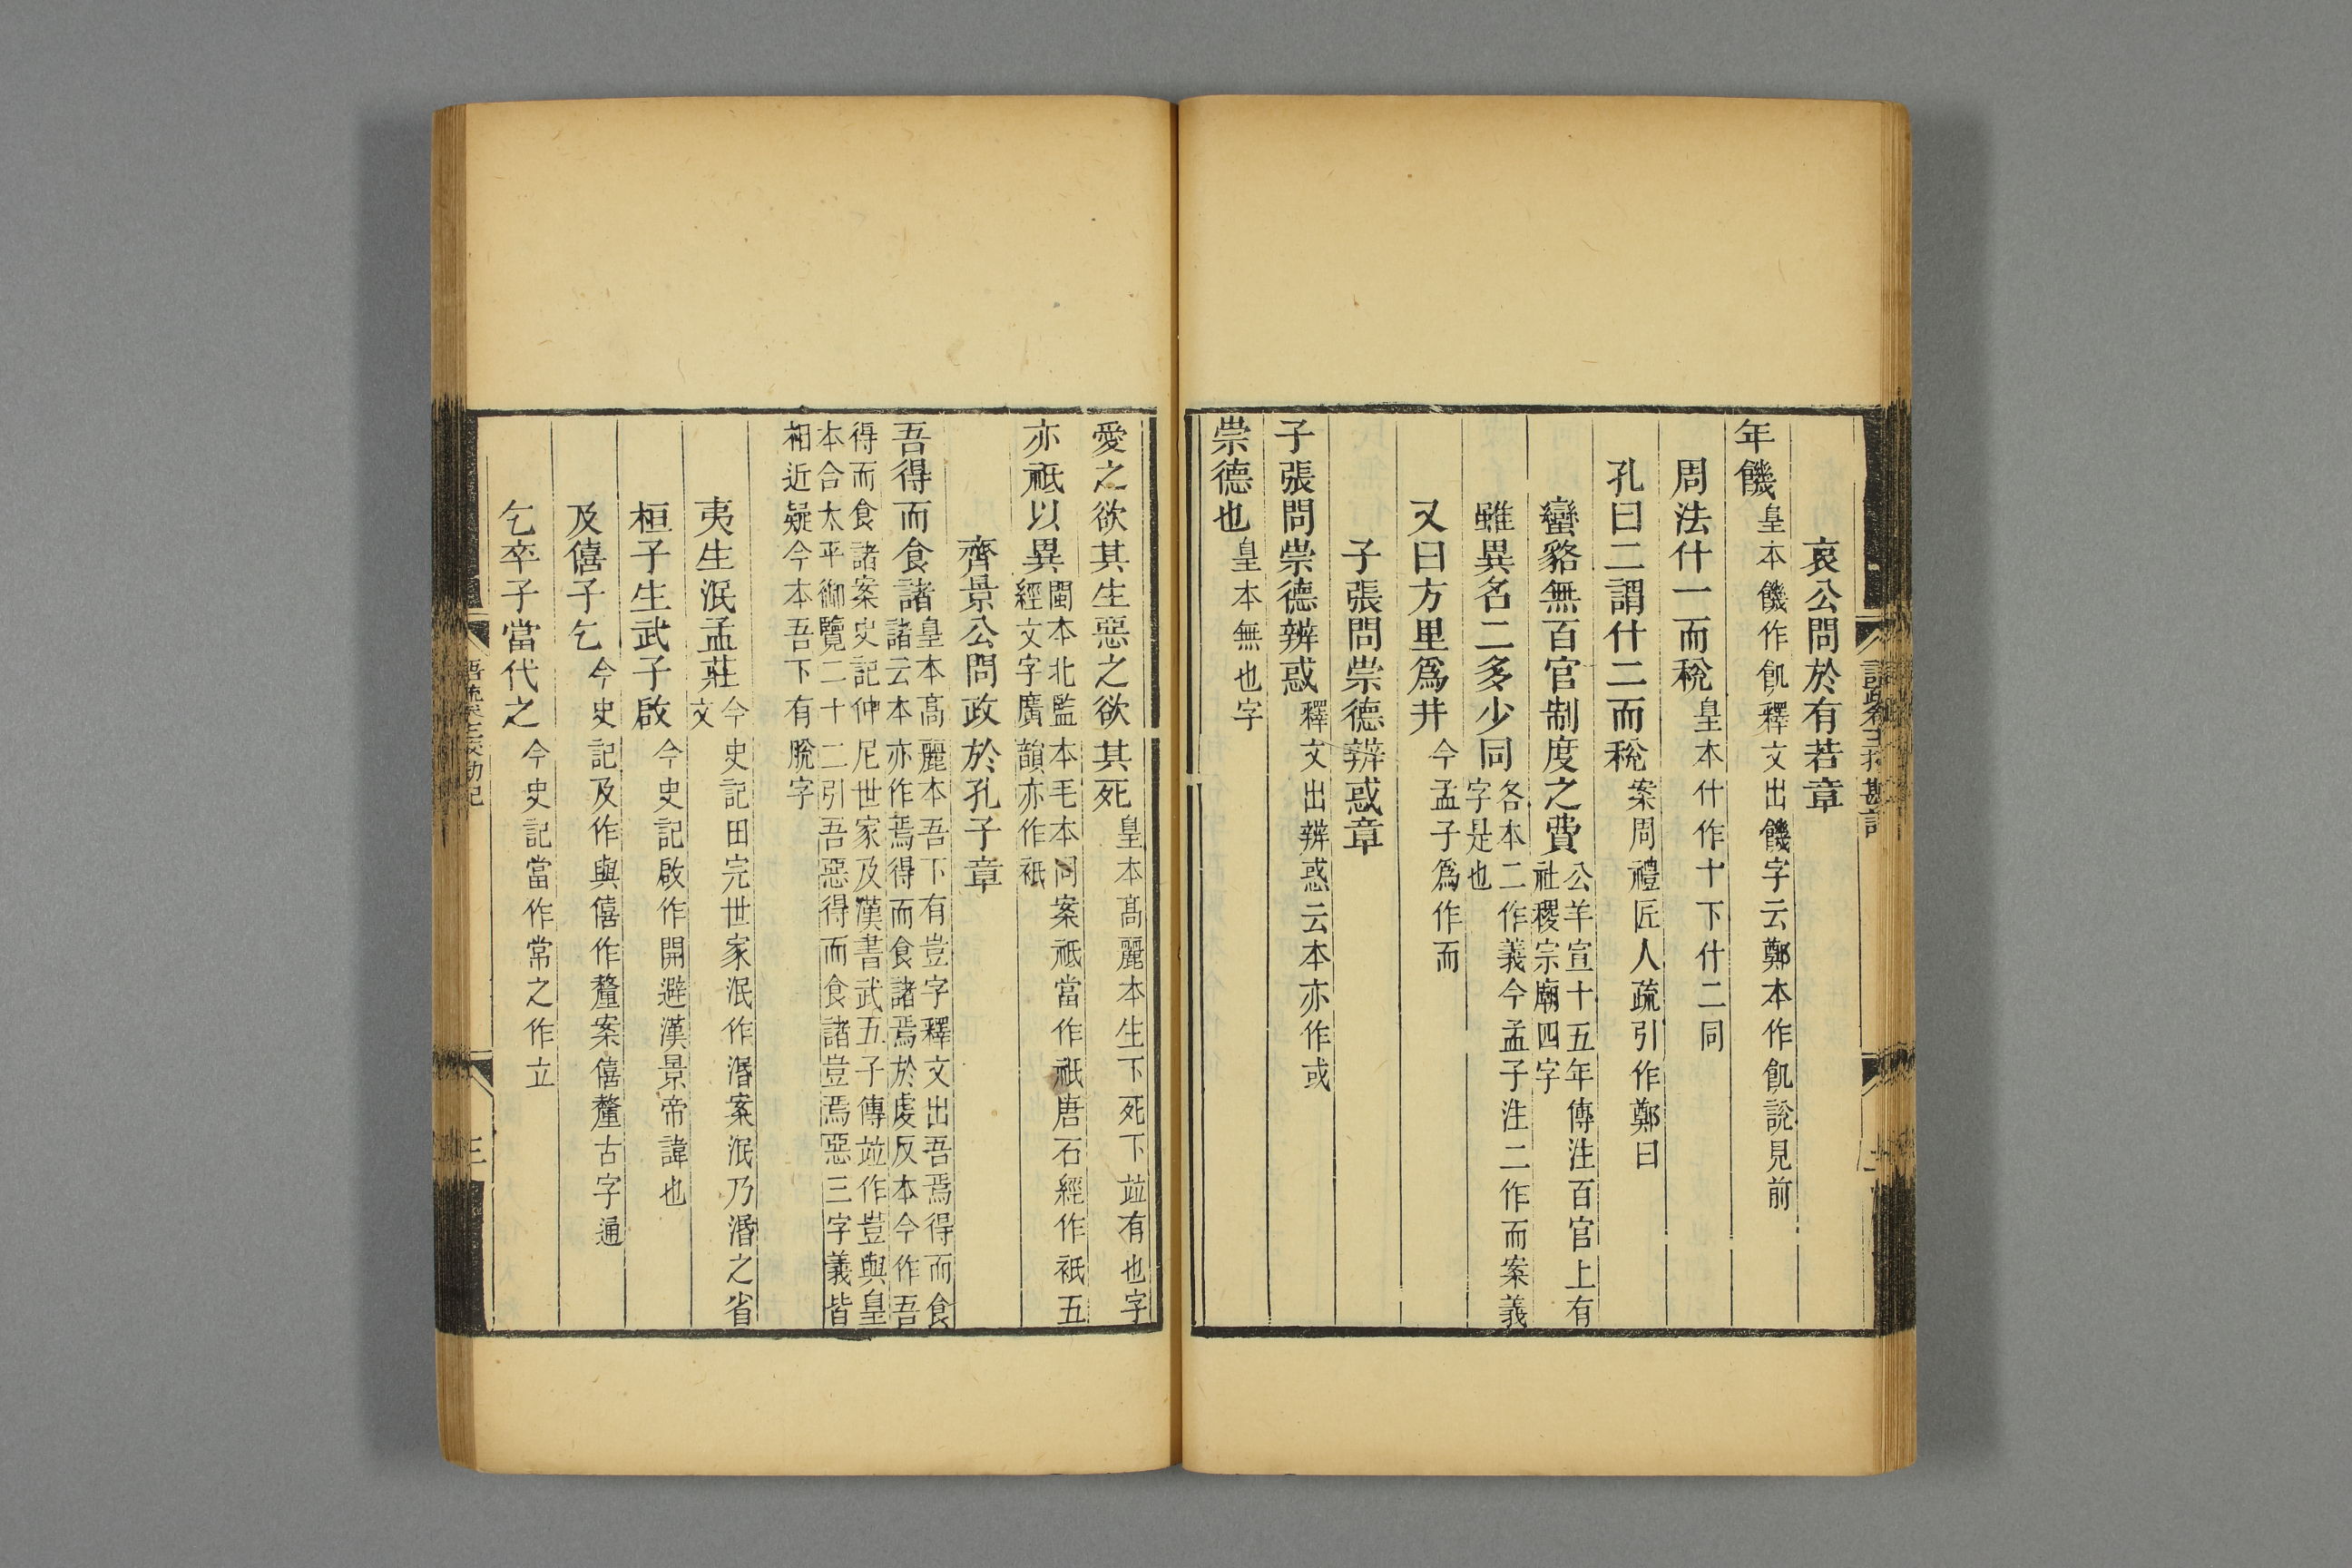 哀公問於有若章
年饑皇本饑作飢釋文出饑字云鄭本作飢說見前
周法什一而稅皇本什作十下什二同
孔曰二謂什二而稅案周禮匠人疏引作鄭曰
蠻貉無百官制度之費公羊宣十五年傳注百官上有社稷宗廟四字
雖異名二多少同各本二作義今孟子注二作而案義字是也
又曰方里爲井今孟子爲作而
子張問崇德辨惑章
子張問崇德辨惑釋文出辨惑云本亦作或
崇德也皇本無也字
愛之欲其生惡之欲其死皇本高麗本生下死下竝有也字
亦祗以異閩本北監本毛本同案祗當作祇唐石經作衹五經文字廣韻亦作衹
齊景公問政於孔子章
吾得而食諸皇本高麗本吾下有豈字釋文出吾焉得而食諸云本亦作焉得而食諸焉於虔反本今作吾
得而食諸案史記仲尼世家及漢書武五子傳竝作豈與皇本合太平御覽二十二引吾惡得而食諸豈焉惡三字義皆
相近疑今本吾下有脫字
夷生泯孟莊今史記田完世家泯作湣案泯乃湣之省文
桓子生武子啟今史記啟作開避漢景帝諱也
及僖子乞今史記及作與僖作釐案僖釐古字通
乞卒子當代之今史記當作常之作立